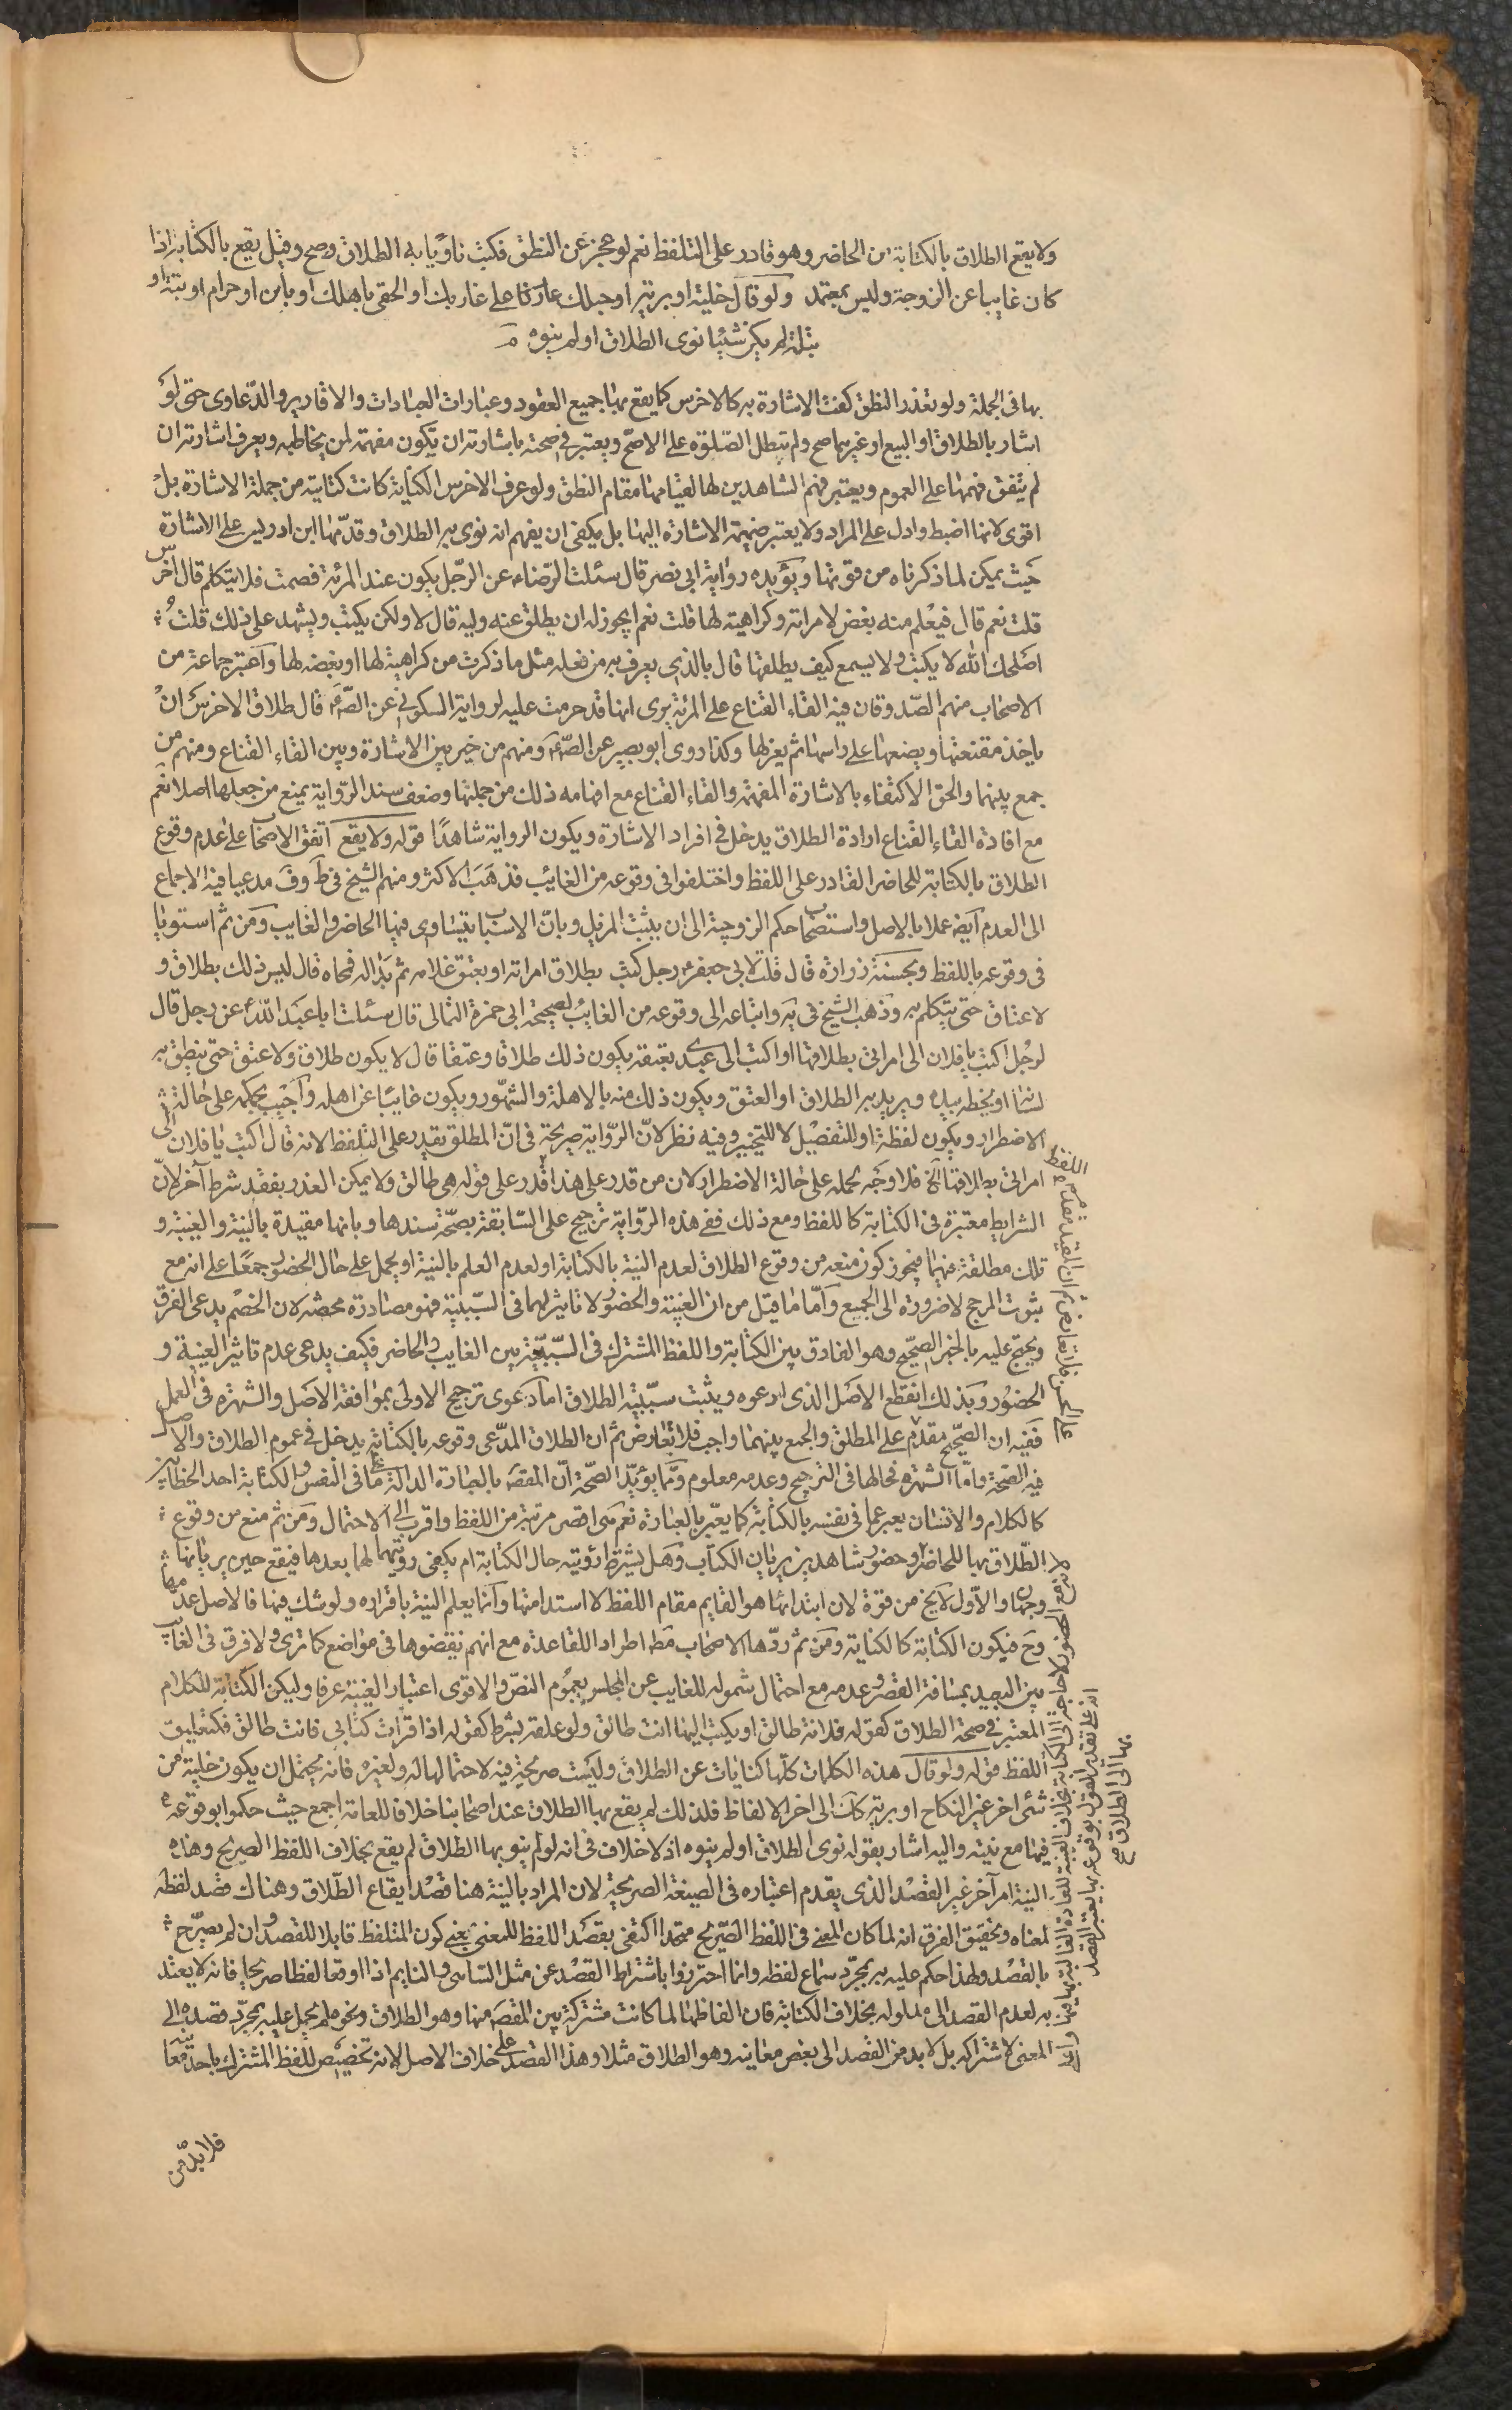 ولا يقع الطلاق بالكتابة من الحاضر وهو قادر على التلفظ نعم لو عجز عن النطق فكتب ناويا به الطلاق صح وقيل يقع بالكتابة اذا
كان غايبا عن الزوجة وليس بمعتمد ولو قال خلية او برية او حبلك على غاربك او الحقي باهلك او باين او حرام او بتة او
بتلة لم يكن شيئا نوى الطلاق او لم ينوه
بها في الجملة ولو تعذر النطق كفت الاشارة به كالاخرس كما يقع بها جميع العقود وعبارات العبادات والاقارير والدعاوى حتى لو
اشار بالطلاق او البيع او غيرهما صح ولم تبطل الصلوة على الاصح ويعتبر في صحته باشارته ان تكون مفهمة لمن يخاطبه ويعرف اشارته ان
لم يتفق فهمها على العموم ويعتبر فهم الشاهدين لها لقيامها مقام النطق ولو عرف الاخرس الكتابة كانت كتابته من جملة الاشارة بل
اقوى لانها اضبط وادل على المراد ولا يعتبر ضميمة الاشارة اليها بل يكفى ان يفهم انه نوى به الطلاق وقدمها ابن ادريس على الاشارة
حيث يمكن لما ذكرناه من قوتها ويؤيده رواية ابى نصر قال سئلت الرضاء عن الرجل يكون عند المرئة فصمت فلا يتكلم قال اخرس
قلت نعم قال فيعلم منه بغض لامراته وكراهية لها قلت نعم ايجوز له ان يطلق عنه وليه قال لا ولكن يكتب ويشهد على ذلك قلت
اصلحك الله لا يكتب ولا يسمع كيف يطلقها قال بالذي يعرف به من فعله مثل ما ذكرت من كراهية لها او بغضه لها واعتبر جماعة من
الاصحاب منهم الصدوقان فيه القاء القناع على المرئة يرى انها قد حرمت عليه لرواية السكوني عن الصم قال طلاق الاخرس ان
ياخذ مقنعتها ويضعها على راسها ثم يعزلها وكذا روى ابو بصير عن الصم ومنهم من خير بين الاشارة وبين القاء القناع ومنهم من
جمع بينهما والحق الاكتفاء بالاشارة المفهمة والقاء القناع مع افهامه ذلك من جملتها وضعف سند الرواية يمنع من جعلها اصلا نعم
مع افادة القاء القناع ارادة الطلاق يدخل في افراد الاشارة ويكون الرواية شاهدا قوله ولا يقع اتفق الاصحاب على عدم وقوع
الطلاق بالكتابة للحاضر القادر على اللفظ واختلفوا في وقوعه من الغائب فذهب الاكثر ومنهم الشيخ في ط وف مدعيا فيه الاجماع
الى العدم ايضا عملا بالاصل واستصحاب حكم الزوجية الى ان يثبت المزيل وبان الاسباب يتساوى فيها الحاضر والغايب ومن ثم استويا
في وقوعه باللفظ وبحسنة زرارة قال قلت لابى جعفر رجل كتب بطلاق امراته او بعتق غلامه ثم بدا له فمحاه قال ليس ذلك بطلاق و
لا عتاق حتى يتكلم به وذهب الشيخ في يه واتباعه الى وقوعه من الغائب لصحيحة ابى حمزة الثمالى قال سئلت ابا عبد الله عن رجل قال
لرجل اكتب يا فلان الى امراتى بطلاقها او اكتب الى عبدى بعتقه يكون ذلك طلاقا وعتقا قال لا يكون طلاق ولا عتق حتى ينطق به
لسانه او يخطه بيده وهو يريد به الطلاق او العتق ويكون ذلك منه بالاهلة والشهور ويكون غايبا عن اهله واجيب بحمله على حالة
الاضطرار ويكون لفظة او للتفصيل لا للتخيير وفيه نظر لان الرواية صريحة في ان المطلق يقدر على التلفظ لانه قال اكتب يا فلان الى
امراتى بطلاقها الخ فلا وجه لحمله على حالة الاضطرار لان من قدر على هذا قدر على قوله هي طالق ولا يمكن العذر بفقد شرط آخر لان
الشرايط معتبرة في الكتابة كاللفظ ومع ذلك ففي هذه الرواية ترجيح على السابقة بصحة سندها وبانها مقيدة بالنية والغيبة و
تلك مطلقة فيهما فيجوز كون منعه من وقوع الطلاق لعدم النية بالكتابة او لعدم العلم بالنية او يحمل على حال الحضور جمعا على انه مع
ثبوت المرجح لا ضرورة الى الجميع واما ما قيل من ان الغيبة والحضور لا تاثير لهما في السببية فهو مصادرة محضة لان الخصم يدعى الفرق
ويحتج عليه بالخبر الصحيح وهو الفارق بين الكتابة واللفظ المشترك في السببية بين الغايب والحاضر فكيف يدعى عدم تاثير الغيبة و
الحضور وبذلك انقطع الاصل الذى ادعوه ويثبت سببية الطلاق اما دعوى ترجيح الاولى بموافقة الاصل والشهرة في العمل
ففيه ان الصحيح مقدم على المطلق والجمع بينهما واجب فلا تعارض ثم ان الطلاق المدعى وقوعه بالكتابة يدخل في عموم الطلاق والاصل
فيه الصحة واما الشهرة فحالها في الترجيح وعدمه معلوم ومما يؤيد الصحة ان المقصود بالعبارة الدالة على ما في النفس والكتابة احد الخطابين
كالكلام والانسان يعبر عما في نفسه بالكتابة كما يعبر بالعبارة نعم هى اقصر مرتبة من اللفظ واقرب الى الاحتمال ومن ثم منع من وقوع
الطلاق بها للحاضر وحضور شاهدين يريان الكتاب وهل يشترط رؤيته حال الكتابة ام يكفى رؤيتهما لها بعدها فيقع حين يريانها
وجهان والاول لا يخ من قوة لان ابتدائها هو القايم مقام اللفظ لا استدامتها وانما يعلم النية باقراره ولو شك فيها فالاصل عدمها
وح فيكون الكتابة كالكناية ومن ثم ردها الاصحاب مط اطراد اللقاعدة مع انهم نقضوها في مواضع كما ترى ولا فرق في الغايب
بين البعيد بمسافة القصر وعدمه مع احتمال شموله للغايب عن المجلس بعموم النص والاقوى اعتبار الغيبة عرفا وليكن الكتابة للكلام
المعتبر في صحة الطلاق كقوله فلانة طالق او يكتب اليها انت طالق ولو علقه بشرط كقوله اذا قرات كتابي فانت طالق فكتعليق
اللفظ قوله ولو قال هذه الكلمات كلها كنايات عن الطلاق وليست صريحة فيه لاحتمالها له ولغيره فانه يحتمل ان يكون خلية من
شئ اخر غير النكاح او برية كك الى اخر الالفاظ فلذلك لم يقع بها الطلاق عند اصحابنا خلافا للعامة اجمع حيث حكموا بوقوعه
فيها مع نيته واليه اشار بقوله نوى الطلاق او لم ينوه اذ لا خلاف في انه لو لم ينو بها الطلاق لم يقع بخلاف اللفظ الصريح وهذه
النية امر آخر غير القصد الذى يقدم اعتباره في الصيغة الصريحة لان المراد بالنية هنا قصد ايقاع الطلاق وهناك قصد لفظه
لمعناه وتحقيق الفرق انه لما كان المعنى في اللفظ الصريح متحدا اكتفى بقصد اللفظ للمعنى بمعنى كون المتلفظ قابلا للقصد وان لم يصرح
بالقصد ولهذا حكم عليه به بمجرد سماع لفظه وانما احترزوا باشتراط القصد عن مثل الساهى والنايم اذا اوقعا لفظا صريحا فانه لا يعتد
به لعدم القصد الى مدلوله بخلاف الكناية فان الفاظها لما كانت مشتركة بين المقصود منها وهو الطلاق وغيره لم يحمل عليه بمجرد قصده الى
المعنى لاشتراكه بل لا بد من القصد الى بعض معانيه وهو الطلاق مثلا وهذا القصد على خلاف الاصل لانه تخصيص للفظ المشترك باحد معانيه
فلا بد من